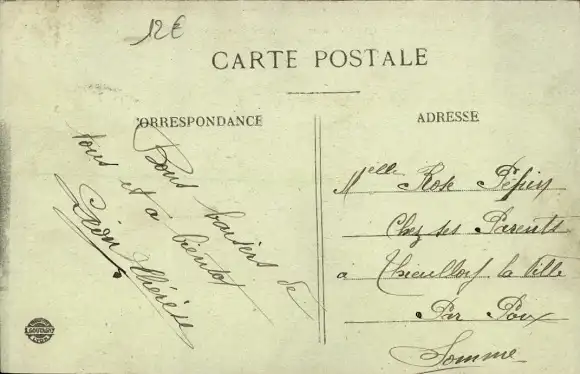 12€
CARTE POSTALE
CORRESPONDANCE
ADRESSE
Bons baisers de
tous et à bientot
Léon Thérèse
Melle Rose Pépin
Chez ses Parents
a Thieulloy la Ville
Par Poix
Somme